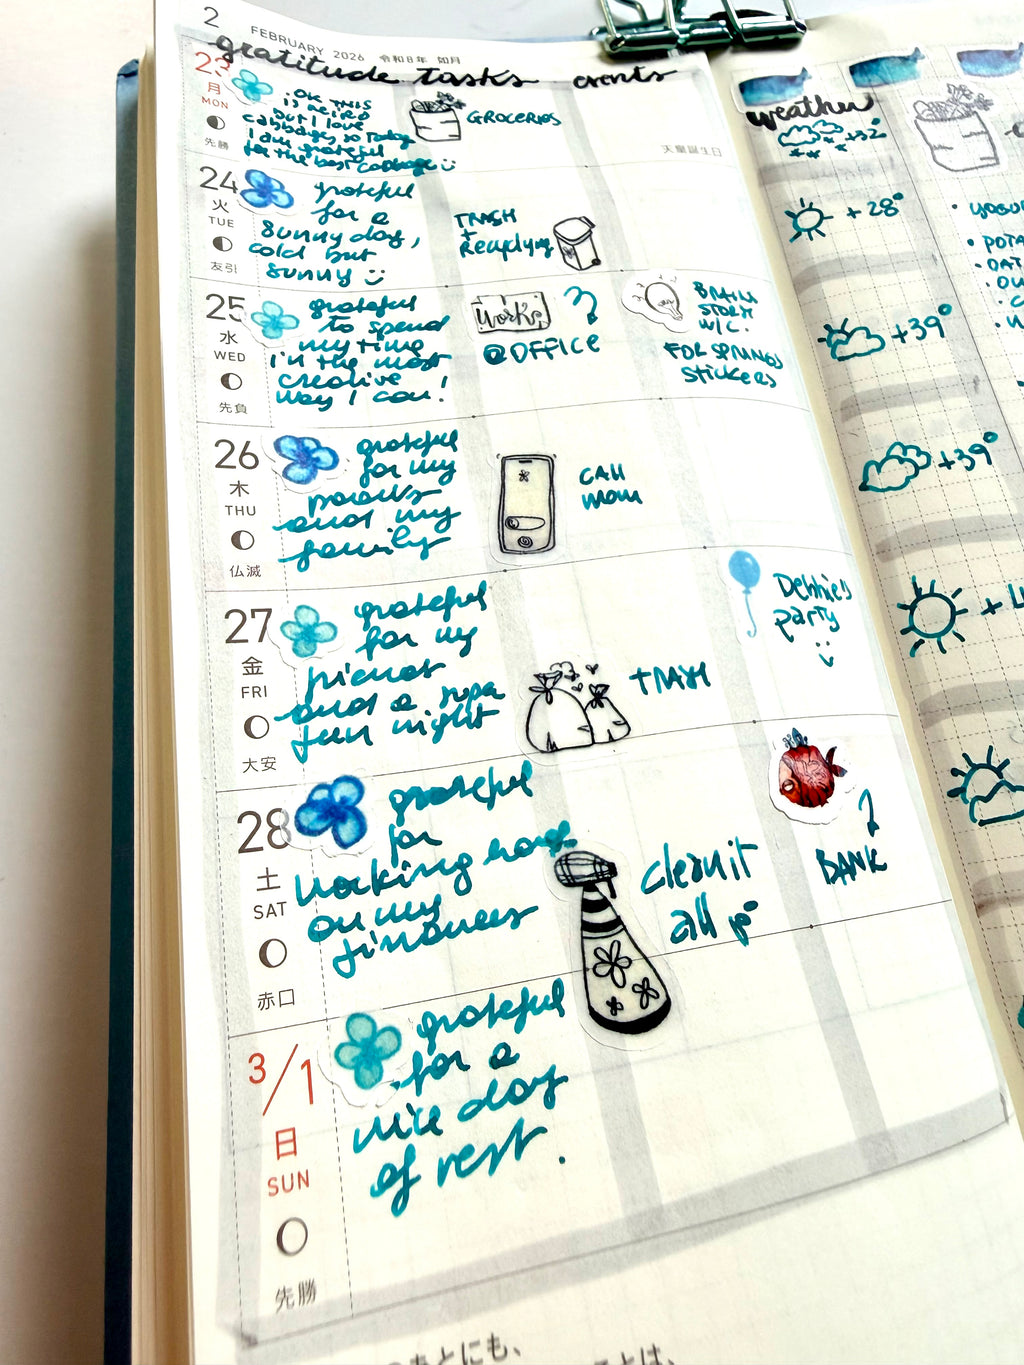 2
FEBRUARY 2026 令和8年 如月
gratitude tasks events
23
月
MON
先勝
OK THIS
is weird
but I love
cabbages, so today
I am grateful
for the best cabbage
GROCERIES
天皇誕生日
24
火
TUE
友引
grateful
for a
sunny day,
cold but
sunny
TRASH
+
Recyclying
25
水
WED
先負
grateful
to spend
my time
in the most
creative
way I can!
Works
@OFFICE
BRAIN
STORM
W/C.
FOR SPRING
stickers
26
木
THU
仏滅
grateful
for my
parents
and my
family
CALL
mom
27
金
FRI
大安
grateful
for my
friends
and a supa
fun night
TRASH
Debbie's
party
28
土
SAT
赤口
grateful
for
working hard
on my
finances
clean it
all up
BANK
3/1
日
SUN
先勝
grateful
for a
nice day
of rest.
あとにも、
ことは、
weather
+32°
+28°
+39°
+39°
+4
• YOGU
• POTA
• OAT
• OU
• C